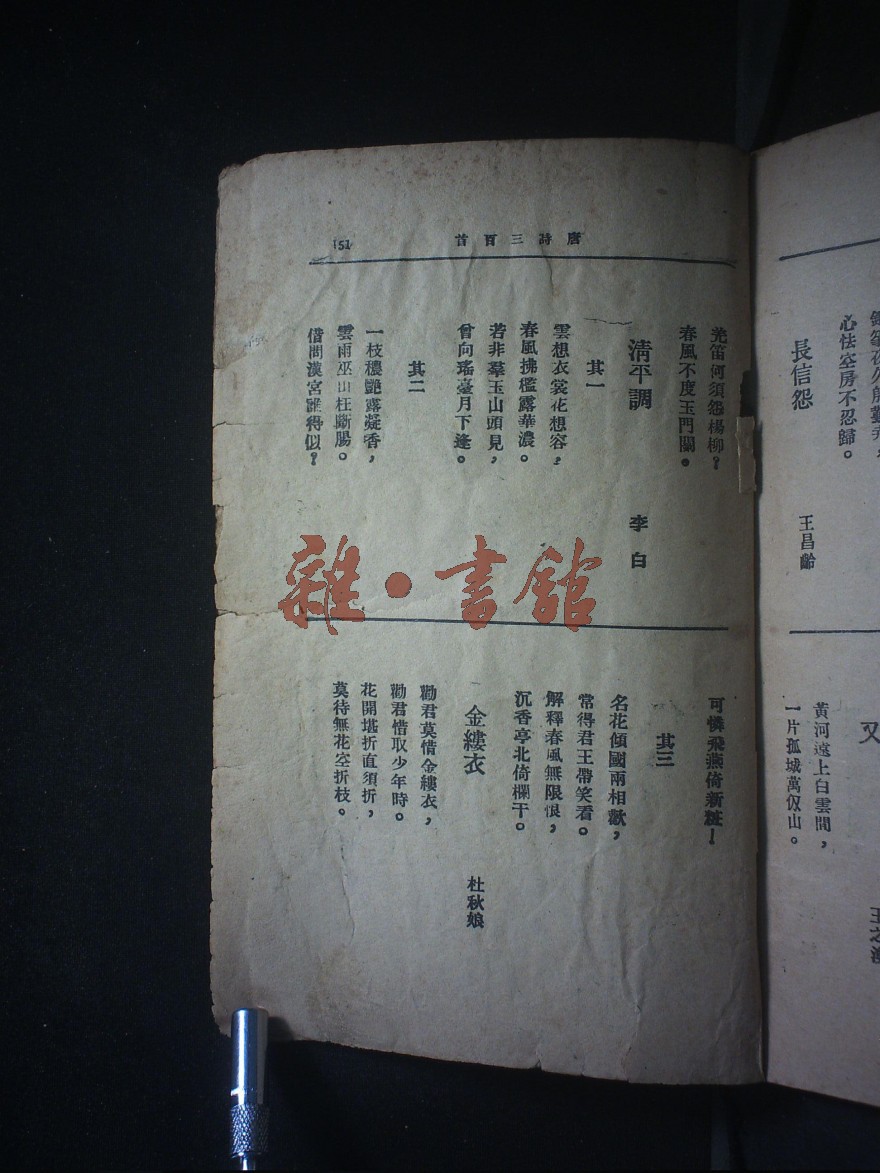 心怯空房不忍歸。
長信怨　王昌齡
又
黃河遠上白雲間，
一片孤城萬仞山。
唐詩三百首
151
羌笛何須怨楊柳？
春風不度玉門關。
清平調　李白
其一
雲想衣裳花想容，
春風拂檻露華濃。
若非羣玉山頭見，
曾向瑤臺月下逢。
其二
一枝穠艷露凝香，
雲雨巫山枉斷腸。
借問漢宮誰得似？
可憐飛燕倚新粧！
其三
名花傾國兩相歡，
常得君王帶笑看。
解釋春風無限恨，
沉香亭北倚欄干。
金縷衣　杜秋娘
勸君莫惜金縷衣，
勸君惜取少年時。
花開堪折直須折，
莫待無花空折枝。
雜·書館